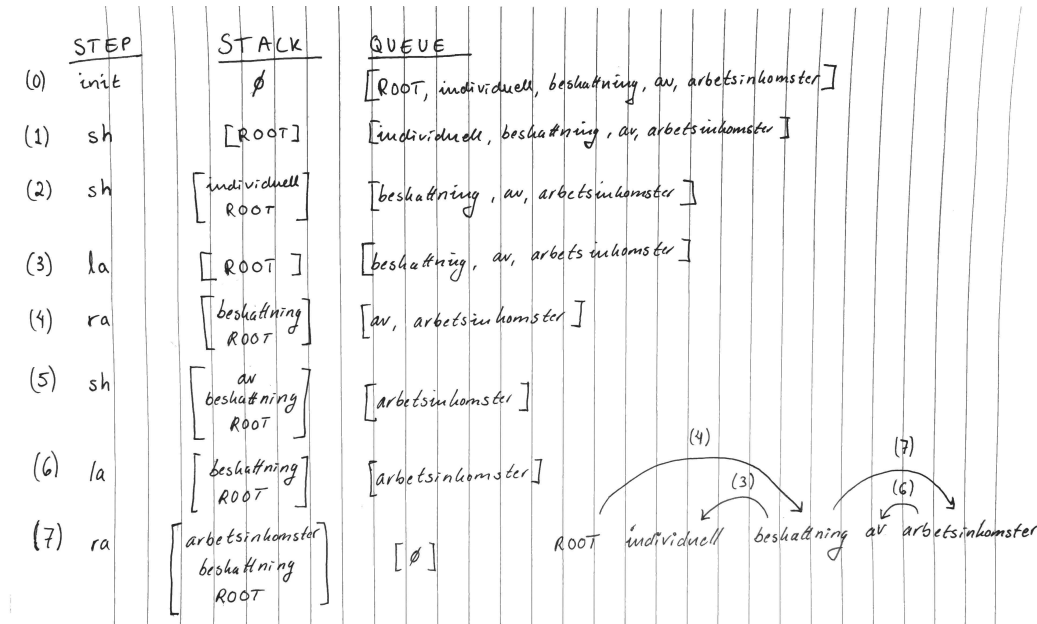 STEP STACK QUEUE
(0) init ∅ [ROOT, individuell, beskattning, av, arbetsinkomster]
(1) sh [ROOT] [individuell, beskattning, av, arbetsinkomster]
(2) sh [individuell [beskattning, av, arbetsinkomster]
ROOT]
(3) la [ROOT] [beskattning, av, arbetsinkomster]
(4) ra [beskattning [av, arbetsinkomster]
ROOT]
(5) sh [av
beskattning [arbetsinkomster]
ROOT]
(6) la [beskattning [arbetsinkomster]
ROOT]
(7) ra [arbetsinkomster
beskattning [∅]
ROOT]
(4) (7)
(3) (6)
ROOT individuell beskattning av arbetsinkomster